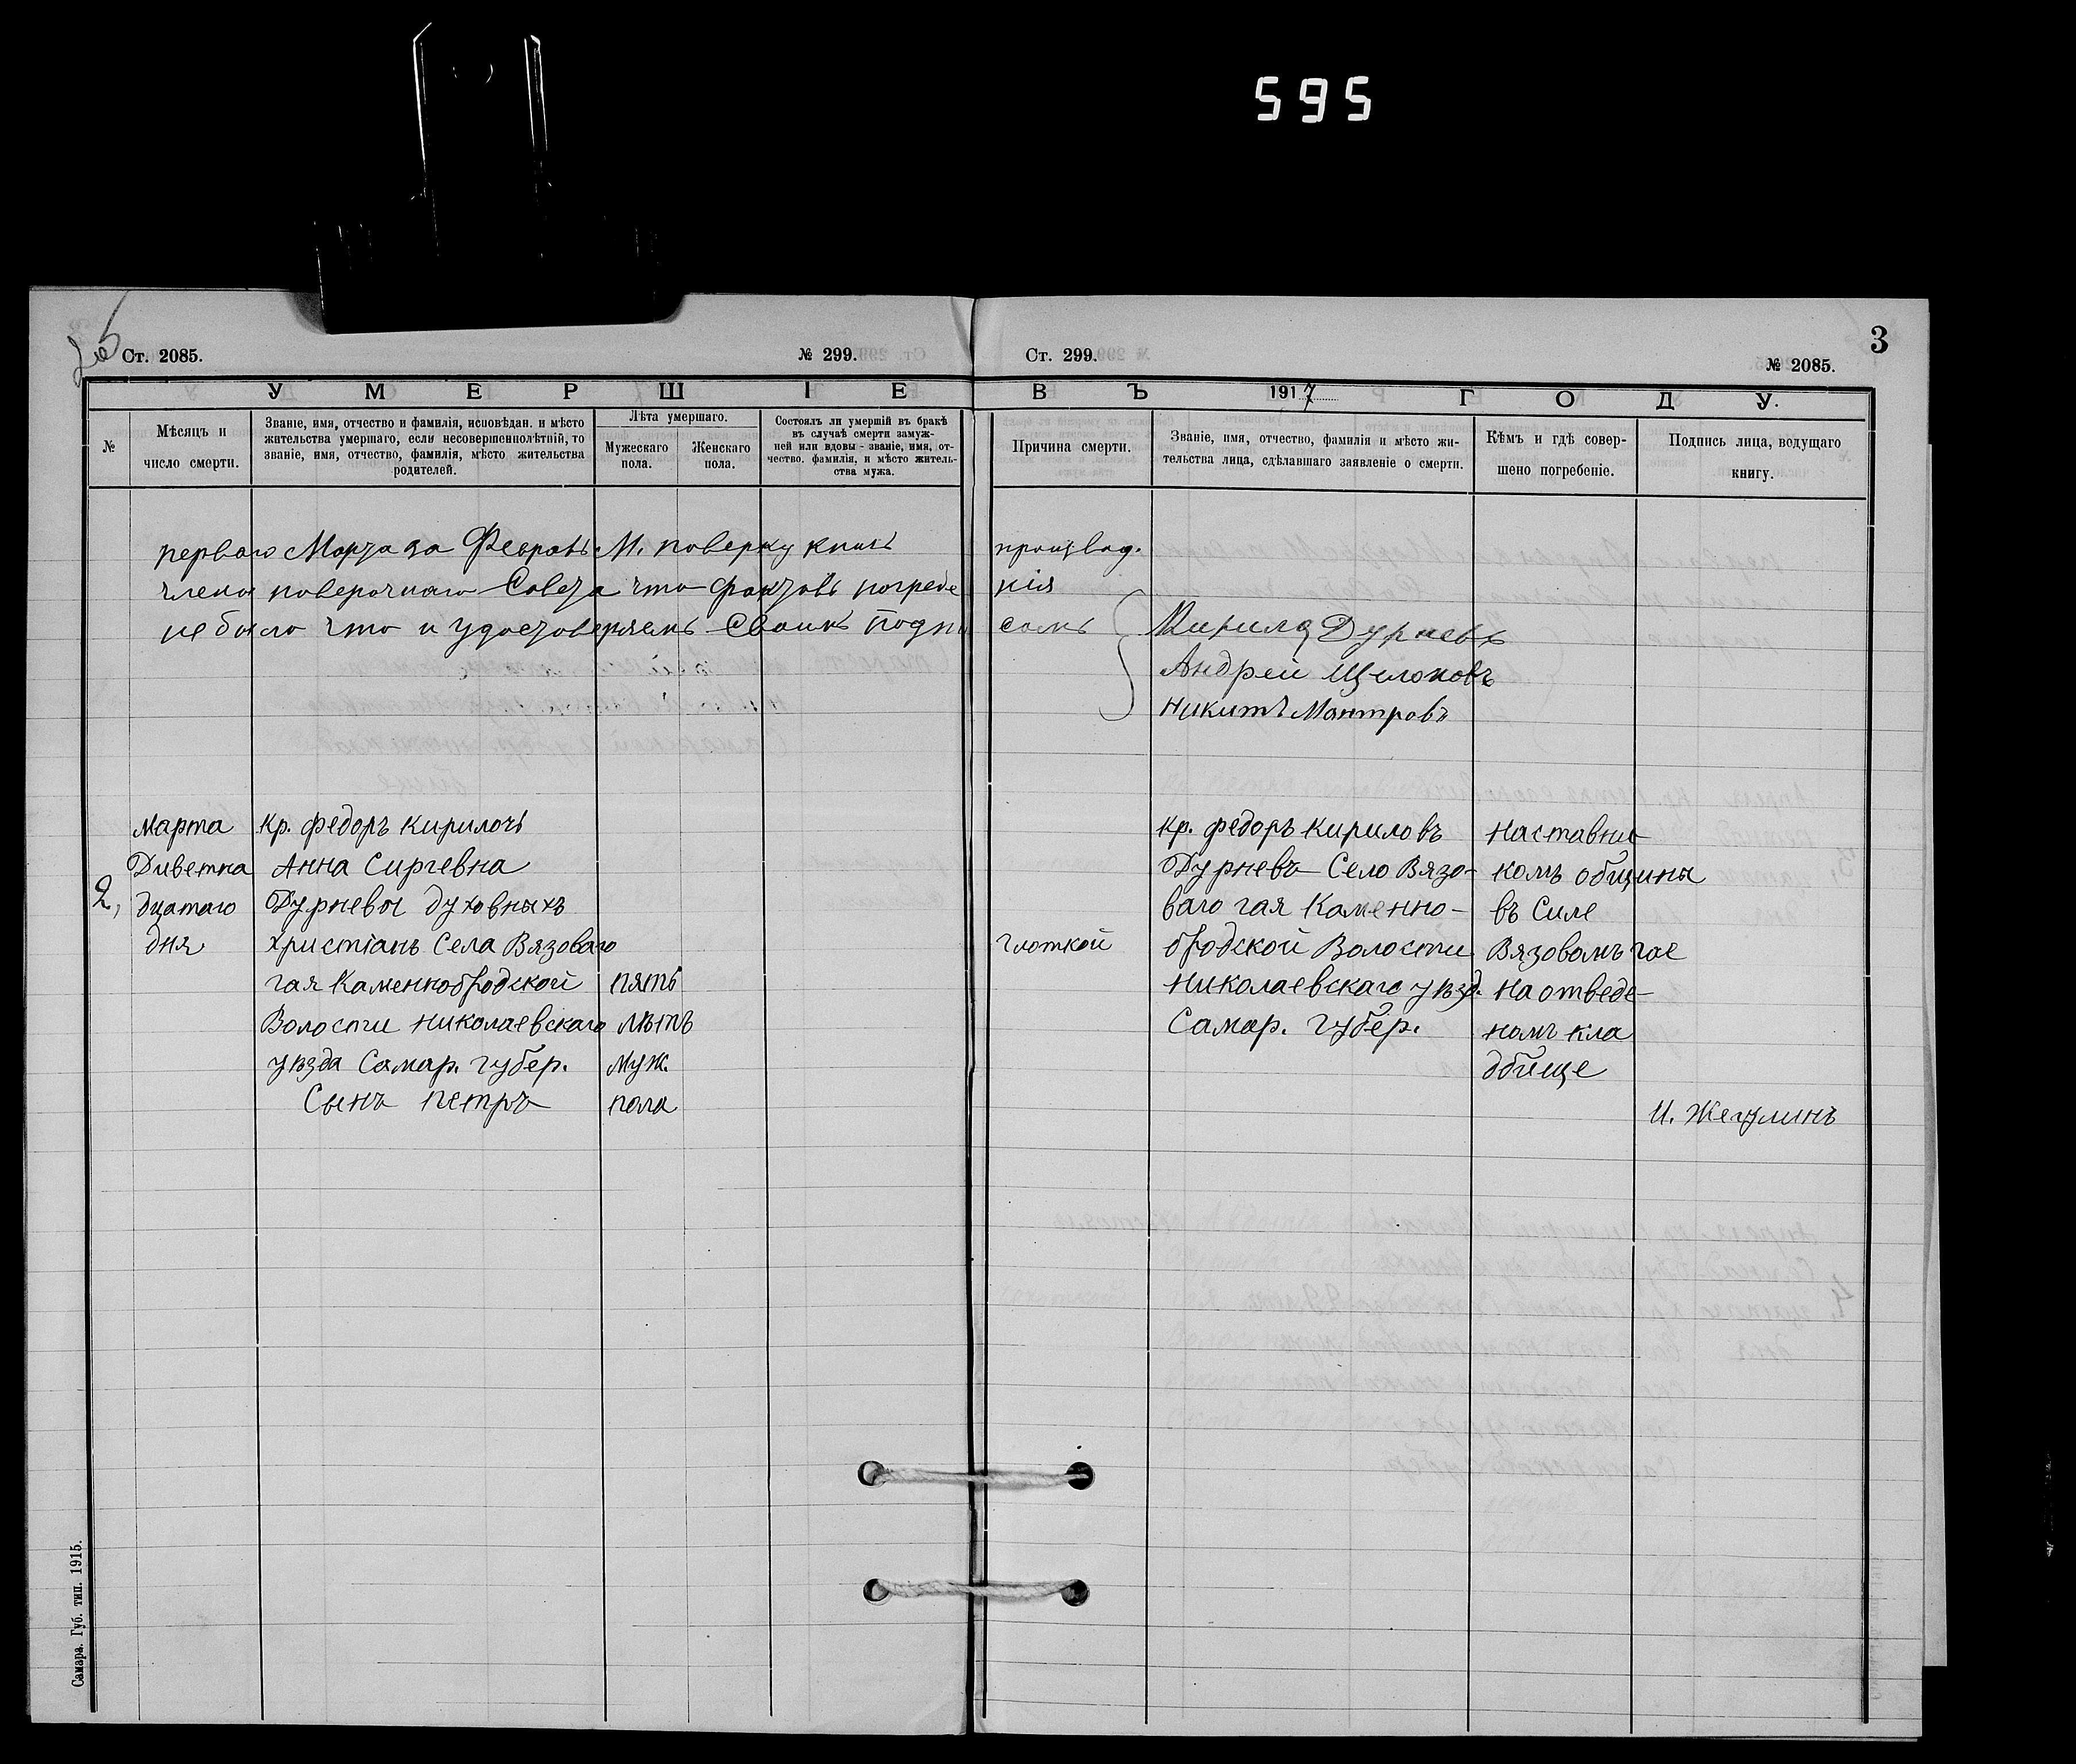 595
3
Ст. 2085.
№ 299.
Ст. 299.
№ 2085.
УМЕРШІЕ ВЪ 1917 ГОДУ.
№
Мѣсяцъ и
число смерти.
Званіе, имя, отчество и фамилія, исповѣдан. и мѣсто
жительства умершаго, если несовершеннолѣтній, то
званіе, имя, отчество, фамилія, мѣсто жительства
родителей.
Лѣта умершаго.
Мужескаго
пола.
Женскаго
пола.
Состоялъ ли умершій въ бракѣ
въ случаѣ смерти замуж-
ней или вдовы - званіе, имя, от-
чество, фамилія, и мѣсто житель-
ства мужа.
Причина смерти.
Званіе, имя, отчество, фамилія и мѣсто жи-
тельства лица, сдѣлавшаго заявленіе о смерти.
Кѣмъ и гдѣ совер-
шено погребеніе.
Подпись лица, ведущаго
книгу.
перваго Марта за Феврал М. поверку книг производ.
члена поверочнаго Совета что фактовъ погребе нія
не было что и удостоверяемъ Своимъ Подпи сомъ
Кирила Дурневъ
Андрей Щелоковъ
Никитъ Мантровъ
2,
Марта
Диветна
дцатаго
дня
Кр. Федоръ Кирилочъ
Анна Сиргевна
Дурневы духовныхъ
христіанъ Села Вязоваго
гая Каменнобродской
Волости Николаевскаго
уѣзда Самар. губер.
Сынъ Петръ
пять
лѣтъ
муж.
пола
глоткой
Кр. Федоръ Кириловъ
Дурневъ Село Вязо-
ваго гая Каменно-
бродской Волости
Николаевскаго уѣзд.
Самар. губер.
Наставни
комъ общины
въ Силе
Вязовамъ гае
на отведе-
номъ кла
дбище
И. Жегулинъ
Самара. Губ. тип. 1915.